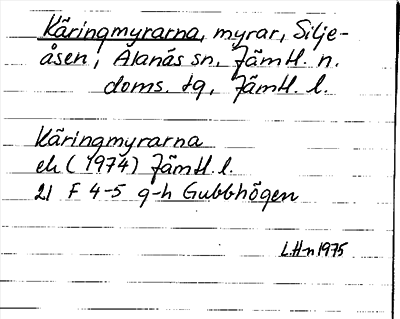 Käringmyrarna, myrar, Silje-
åsen, Alanäs sn, Jämtl. n.
doms. tg, Jämtl. l.
Käringmyrarna
ek (1974) Jämtl. l.
21 F 4-5 g-h Gubbhögen
L.H-n 1975